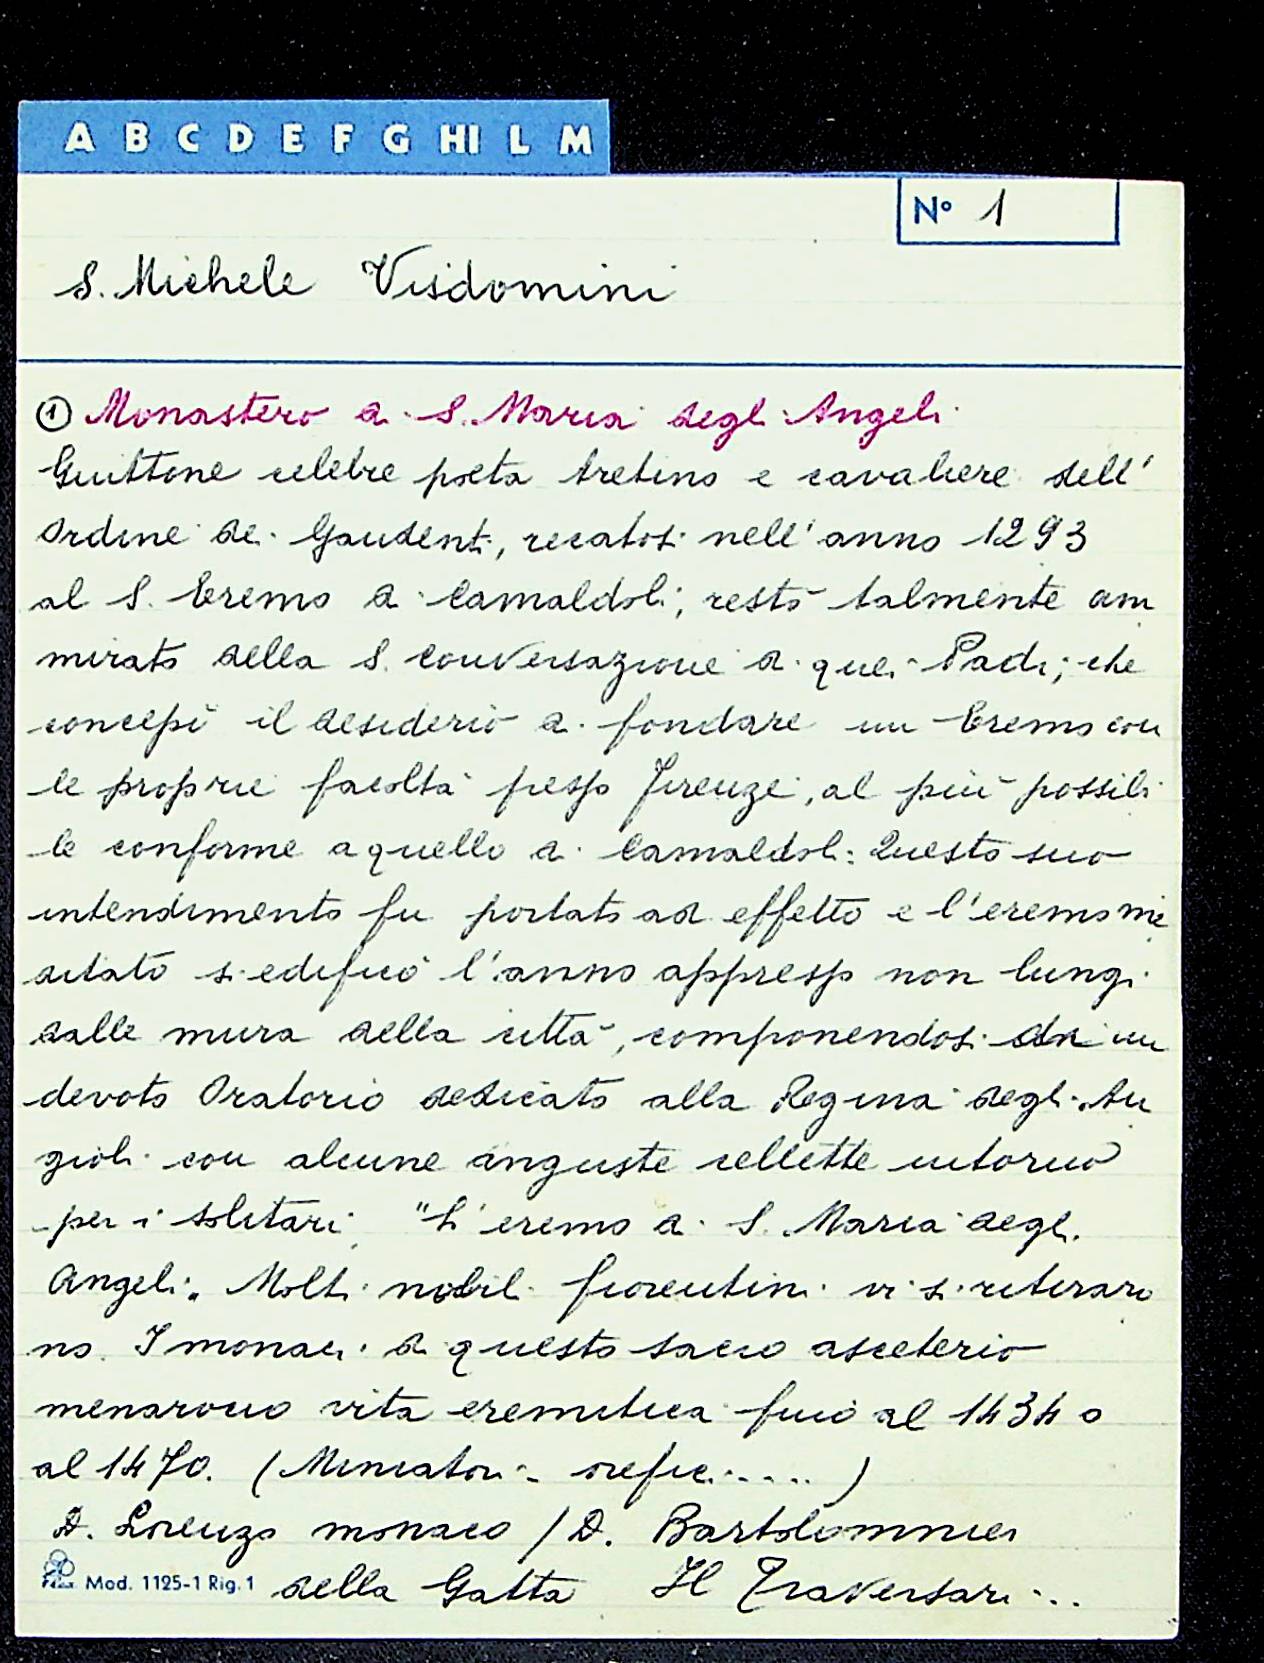 A B C D E F G HI L M
N° 1
S. Michele Visdomini
① Monastero di S. Maria degli Angeli
Guittone celebre poeta Aretino e cavaliere dell'
Ordine dei Gaudenti, recatosi nell'anno 1293
al S. Eremo di Camaldoli, restò talmente am
mirato della S. conversazione di quei Padri, che
concepì il desiderio di fondare un Eremo con
le proprie facoltà presso Firenze, al più possibi
le conforme a quello di Camaldoli: Questo suo
intendimento fu portato ad effetto e l'eremo me
ditato si edificò l'anno appresso non lungi
dalle mura della città, componendosi di un
devoto Oratorio dedicato alla Regina degli An
gioli con alcune anguste cellette intorno
per i solitari "L'eremo di S. Maria degli
Angeli". Molti nobili fiorentini vi si ritiraro
no. I monaci di questo sacro asceterio
menarono vita eremitica fino al 1434 o
al 1470. (Miniatori - orefici.....)
D. Lorenzo monaco / D. Bartolommeo
della Gatta Il Traversari...
Mod. 1125-1 Rig. 1